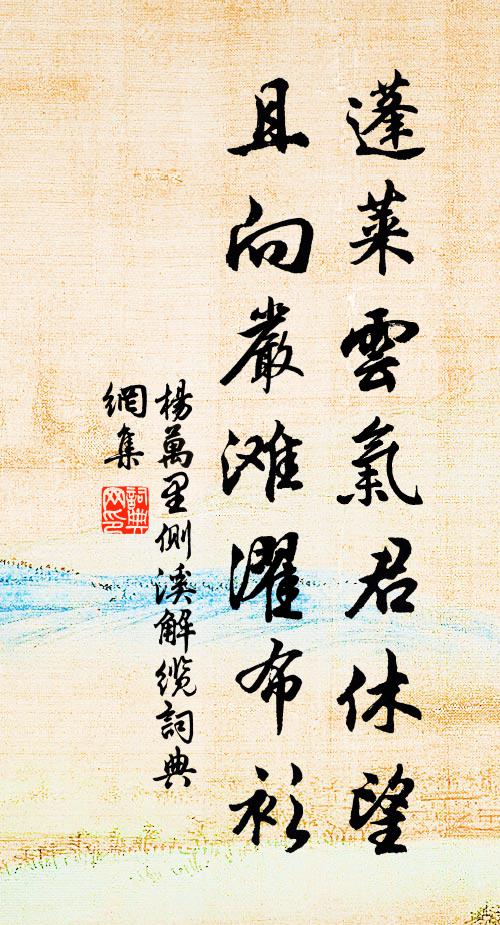 蓬萊雲氣君休望
且向嚴滩濯布衫
楊萬里側溪解纜詞典
網集
詞典網印